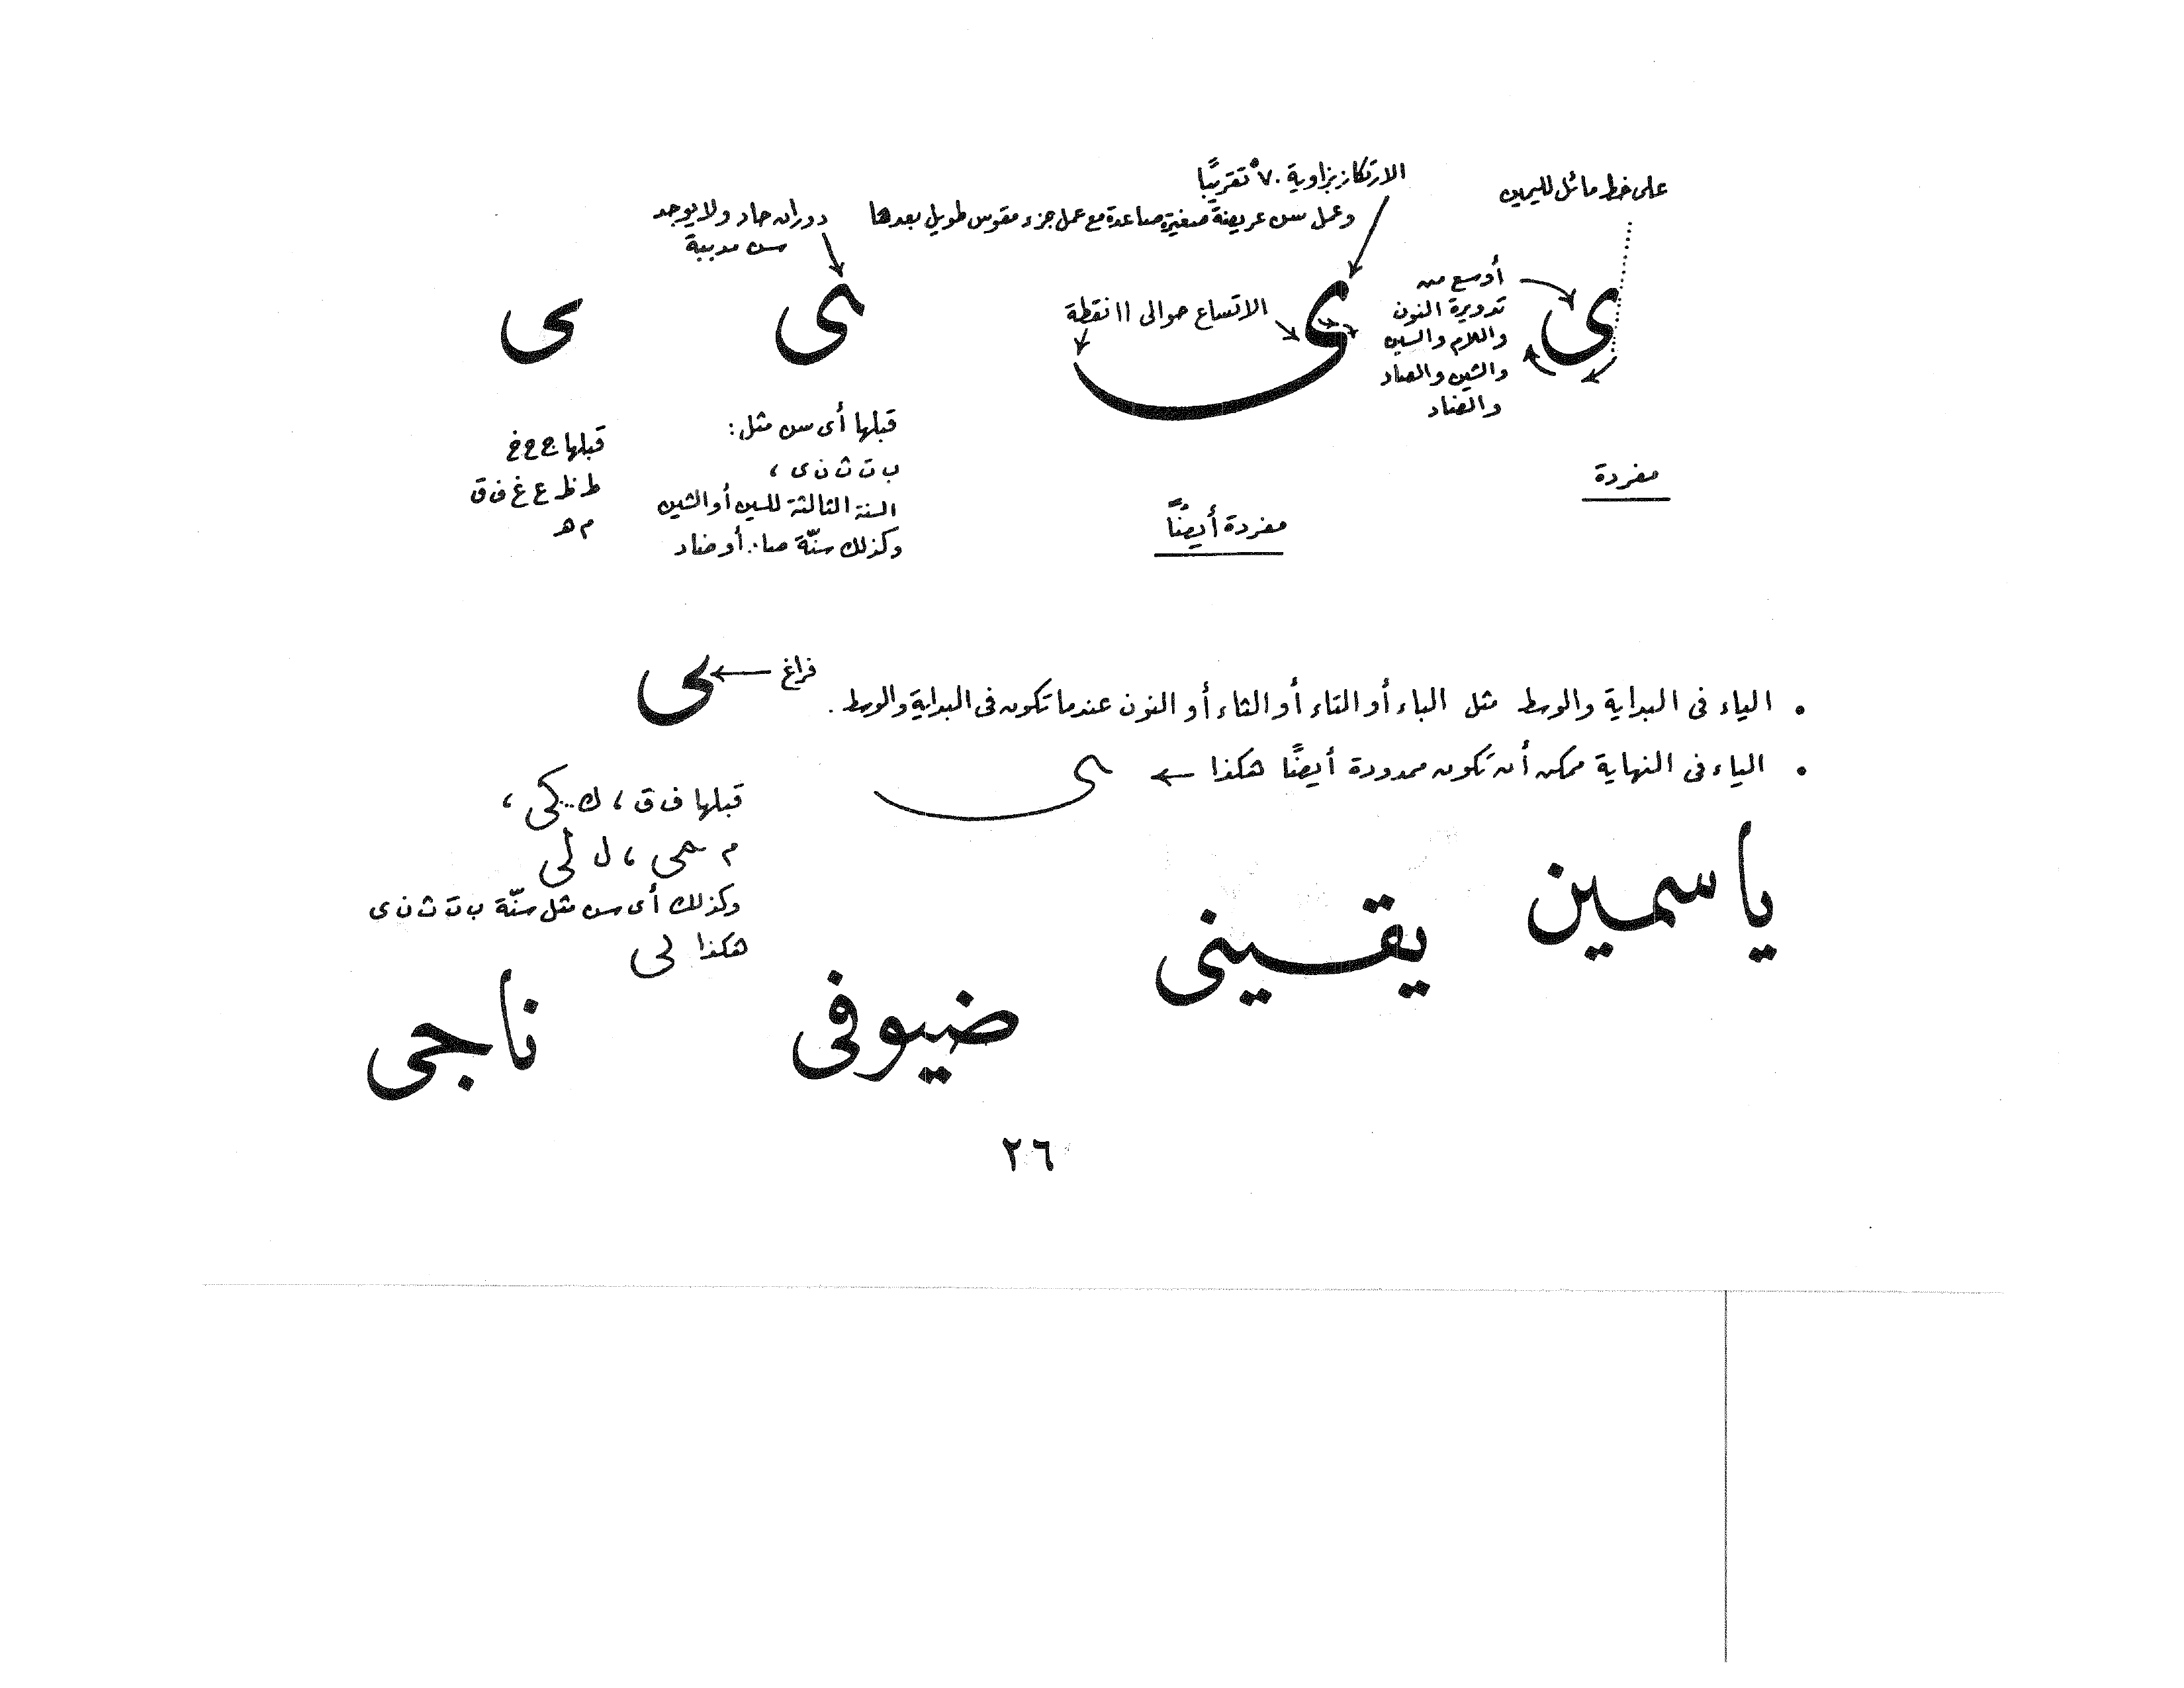 على خط مائل لليمين
ى
أوسع من
تدويرة النون
واللام والسين
والشين والصاد
والضاد
مفردة
الارتكاز بزاوية ٧٠° تقريبًا
وعمل سن عريضة صغيرة صاعدة مع عمل جزء مقوس طويل بعدها
ى
الاتساع حوالى ١١ نقطة
مفردة أيضًا
دوران حاد ولا يوجد
سن مدببة
ى
قبلها أى سن مثل:
ب ت ث ن ى ،
السنة الثالثة للسين أو الشين
وكذلك سنّة صاد أو ضاد
ى
قبلها ج ح خ
ط ظ ع غ ف ق
م ه
• الياء فى البداية والوسط مثل الباء أو التاء أو الثاء أو النون عندما تكون فى البداية والوسط .
فراغ
ى
• الياء فى النهاية ممكن أن تكون ممدودة أيضًا هكذا ← ى
قبلها ف ق ، ك .. كى ،
م مى ، ل لى
وكذلك أى سن مثل سنّة ب ت ث ن ى
هكذا
ياسمين
يقينى
ضيوفى
ناجى
٢٦